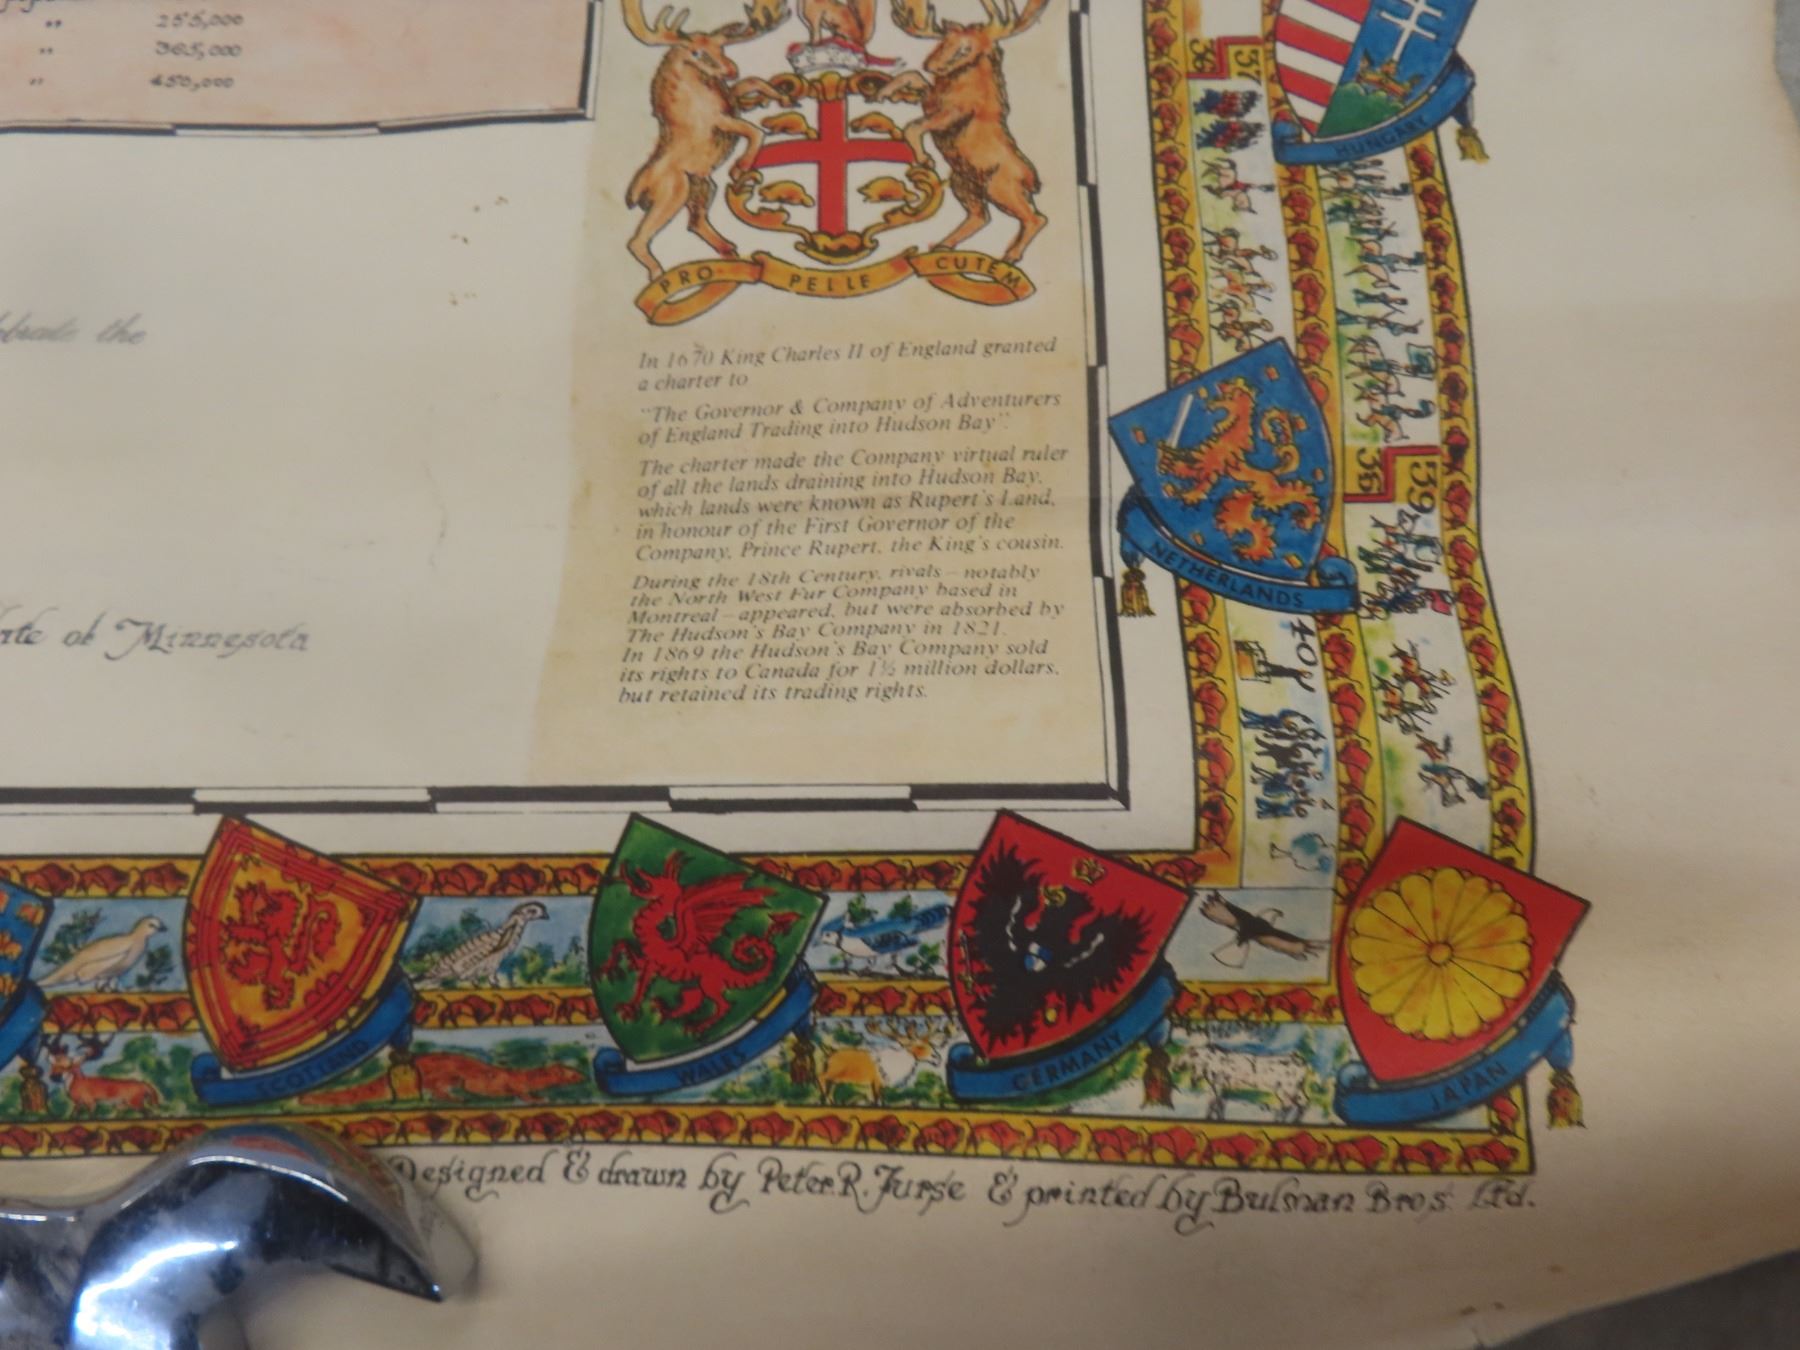 255,000
365,000
450,000
the
of Minnesota
PRO PELLE CUTEM
In 1670 King Charles II of England granted
a charter to
"The Governor & Company of Adventurers
of England Trading into Hudson Bay".
The charter made the Company virtual ruler
of all the lands draining into Hudson Bay,
which lands were known as Rupert's Land,
in honour of the First Governor of the
Company, Prince Rupert, the King's cousin.
During the 18th Century, rivals – notably
the North West Fur Company based in
Montreal – appeared, but were absorbed by
The Hudson's Bay Company in 1821.
In 1869 the Hudson's Bay Company sold
its rights to Canada for 1½ million dollars,
but retained its trading rights.
36 37
HUNGARY
38 39
NETHERLANDS
40
SCOTLAND
WALES
GERMANY
JAPAN
Designed & drawn by Peter R. Furse & printed by Bulman Bros. Ltd.